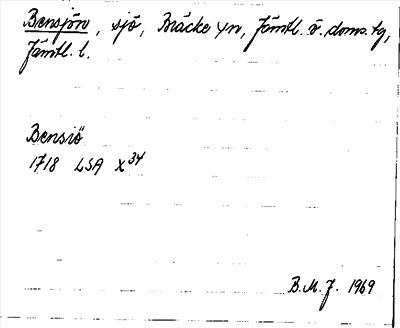 Bensjön, sjö, Bräcke sn, Jämtl. ö. doms. tg,
Jämtl. l.
Bensiö
1718 LSA X 34
B.M.J. 1969